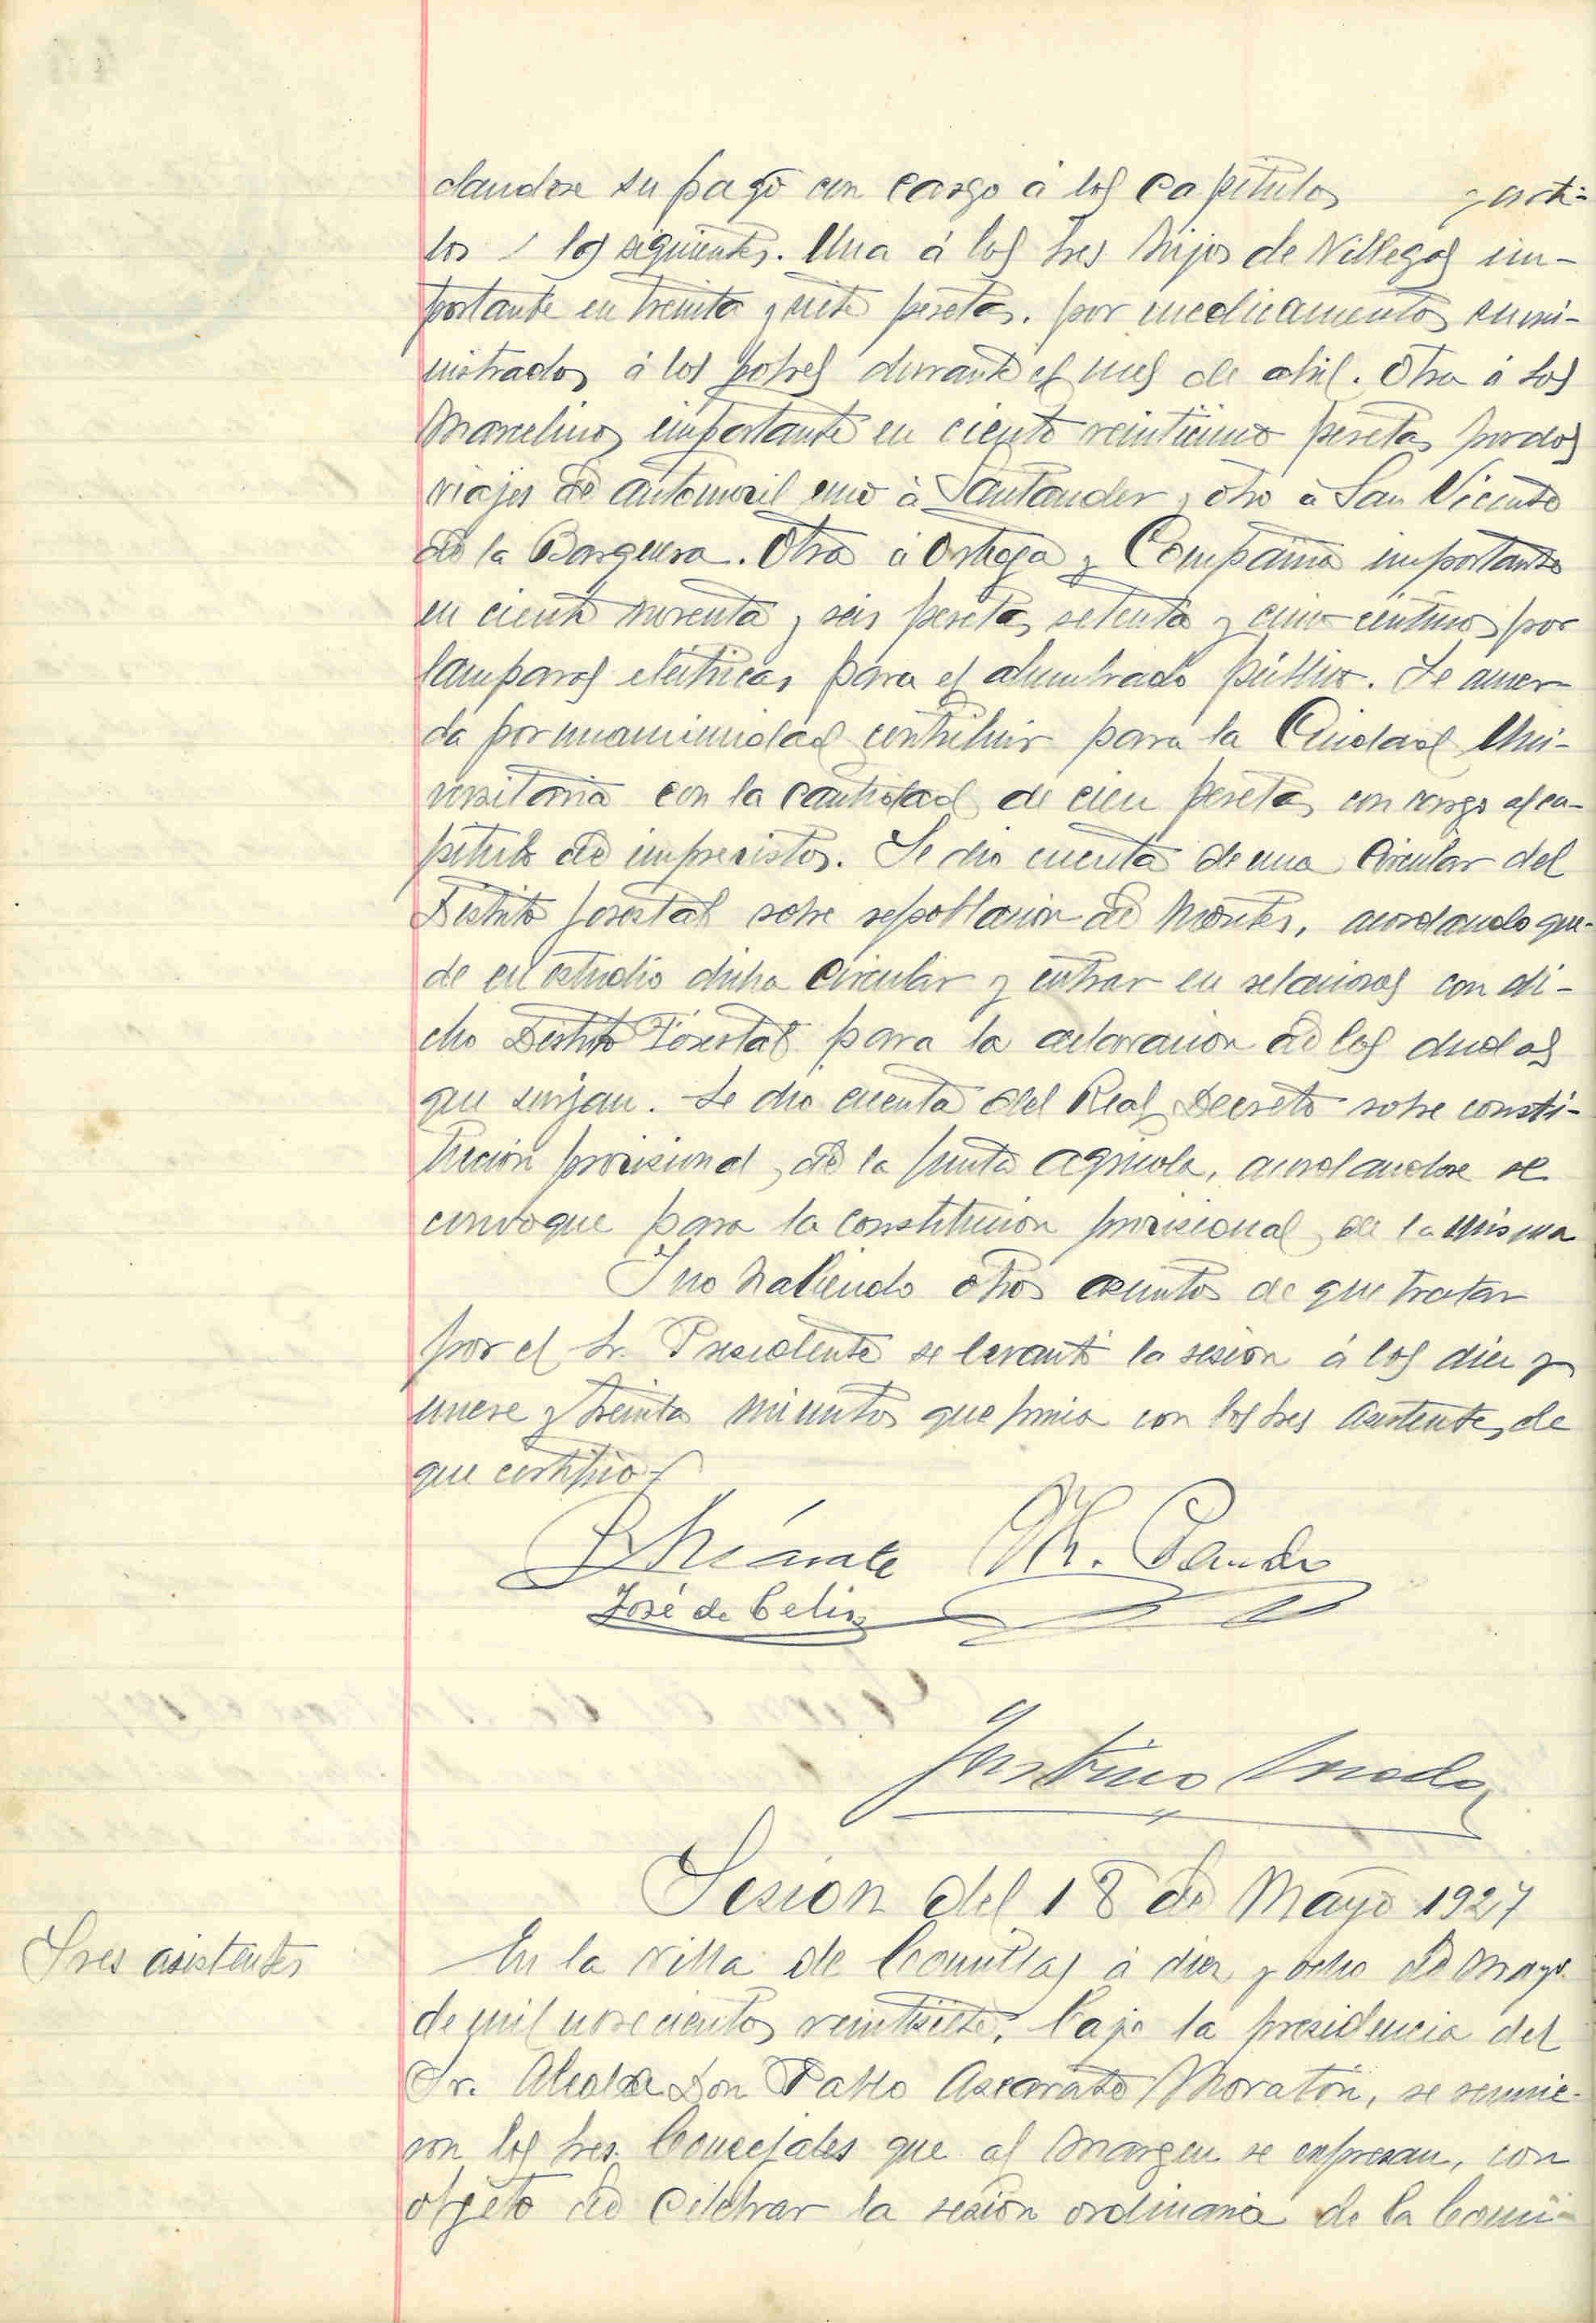 dandose su pago con cargo á los capítulos y artí-
los los siguientes. Una á los Sres Hijos de Villegas im-
portante en treinta y siete pesetas. por medicamentos sumi-
nistrados á los pobres durante el mes de abril. Otra á los
Marcelinos importante en ciento veinticinco pesetas por dos
viajes de automovil uno á Santander y otro á San Vicente
de la Barquera. Otra á Ortega y Compañia importante
en ciento noventa y seis pesetas setenta y cinco centimos por
lamparas eléctricas para el alumbrado público. Se acuer-
da por unanimidad contribuir para la Ciudad Uni-
versitaria con la cantidad de cien pesetas con cargo al ca-
pitulo de imprevistos. Se dio cuenta de una Circular del
Distrito forestal sobre repoblacion de Montes, acordando que-
de en estudio dicha Circular y entrar en relaciones con di-
cho Distrito Forestal para la aclaracion de las dudas
que surjan. Se dio cuenta del Real Decreto sobre consti-
tución provisional de la Junta agricola, acordandose se
convoque para la constitucion provisional de la misma
Y no habiendo otros asuntos de que tratar
por el Sr. Presidente se levantó la sesion á las diez y
nueve y treinta minutos que firma con los Sres asistentes, de
que certifico
José de Celis
M. Pando
Sesion del 18 de Mayo 1927
Sres asistentes
En la Villa de Comillas á diez y ocho de Mayo
de mil novecientos veintisiete. bajo la presidencia del
Sr. Alcalde Don Pablo Azcarate Moraton, se reunie-
ron los Sres. Concejales que al margen se expresan, con
objeto de celebrar la sesion ordinaria de la Comi-